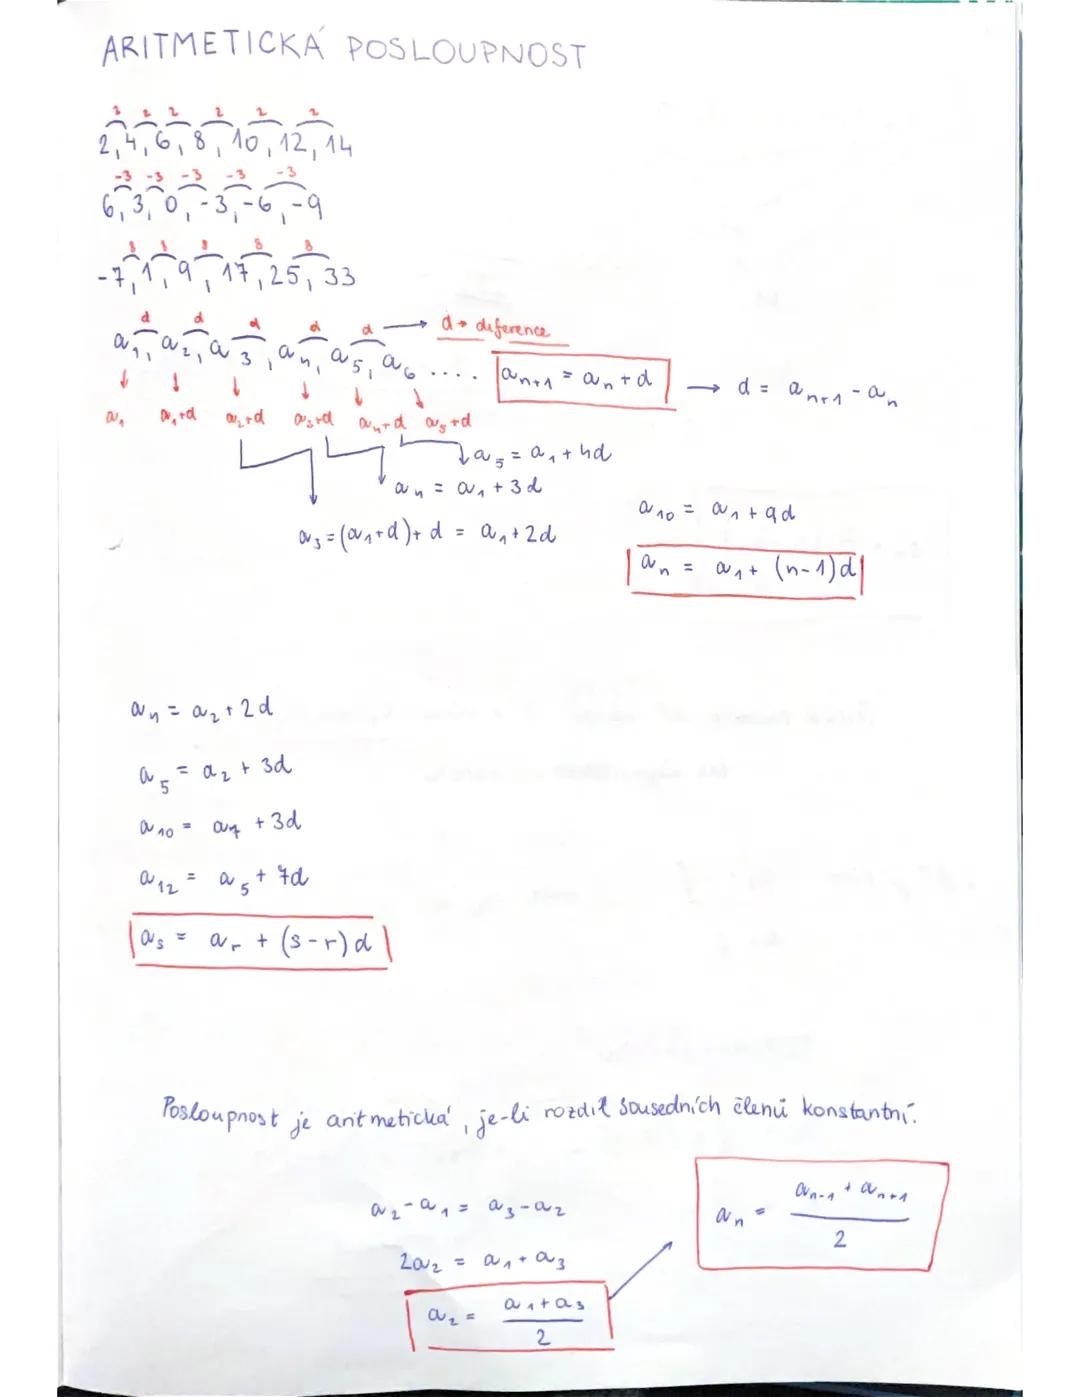 ARITMETICKÁ POSLOUPNOST
2 2 2 2 2 2
2, 4, 6, 8, 10, 12, 14
-3 -3 -3 -3 -3
6, 3, 0, -3, -6, -9
8 8 8 8 8
-7, 1, 9, 17, 25, 33
d d d d d → d → diference
a₁, a₂, a₃, a₄, a₅, a₆ .... aₙ₊₁ = aₙ + d → d = aₙ₊₁ - aₙ
a₁ a₁+d a₂+d a₃+d a₄+d a₅+d
a₅ = a₁ + 4d
a₄ = a₁ + 3d
a₁₀ = a₁ + 9d
a₃ = (a₁+d) + d = a₁ + 2d
aₙ = a₁ + (n-1)d
a₄ = a₂ + 2d
a₅ = a₂ + 3d
a₁₀ = a₇ + 3d
a₁₂ = a₅ + 7d
aₛ = aᵣ + (s-r)d
Posloupnost je aritmetická, je-li rozdíl sousedních členů konstantní.
a₂ - a₁ = a₃ - a₂
aₙ = (aₙ₋₁ + aₙ₊₁) / 2
2a₂ = a₁ + a₃
a₂ = (a₁ + a₃) / 2